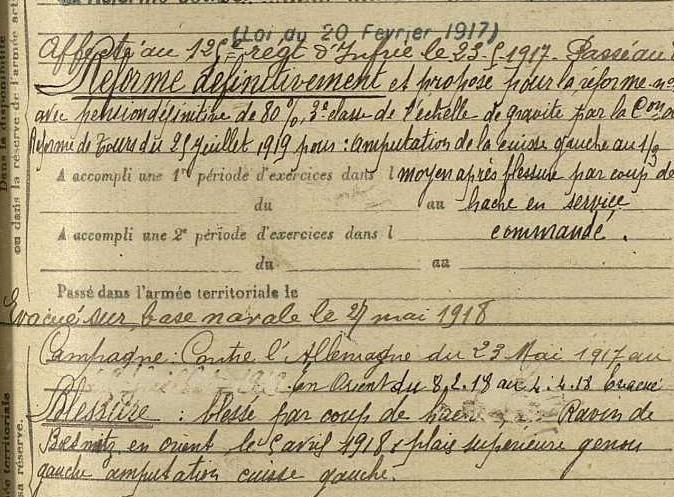 (Loi du 20 Février 1917)
Affecté au 125e regt d'Infrie le 23 5 1917. Passé au
Réformé définitivement et proposé pour la réforme no
avec pension définitive de 80%, 3e classe de l'échelle de gravité par la Con
Réforme de Tours du 25 juillet 1919 pour: amputation de la cuisse gauche au 1/3
A accompli une 1re période d'exercices dans l moyen après blessure par coup de
du au hache en service
A accompli une 2e période d'exercices dans l commandé.
du au
Passé dans l'armée territoriale le
Evacué sur base navale le 27 mai 1918
Campagne: Contre l'Allemagne du 23 Mai 1917 au
en Orient du 8.2.18 au 4.4.18 Evacué
Blessure: blessé par coup de Ravin de
en orient le 5 avril 1918, plaie supérieure genou
gauche amputation cuisse gauche.
Dans la disponibilité
ou dans la réserve de l'armée act
territoriale
sa réserve.